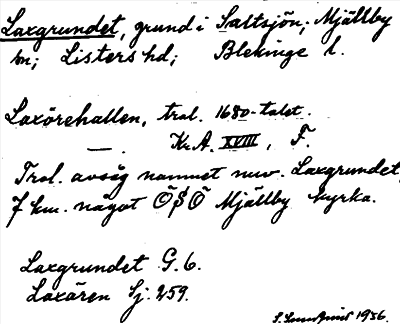 Laxgrundet, grund i Saltsjön; Mjällby
sn; Listers hd; Blekinge l.
Laxörehallen, trol. 1680-talet.
— . Kr.A. XVIII, F.
Trol. avsåg namnet nuv. Laxgrundet,
7 km. något ÖSÖ Mjällby kyrka.
Laxgrundet G.6.
Laxören Sj. 259.
1956.